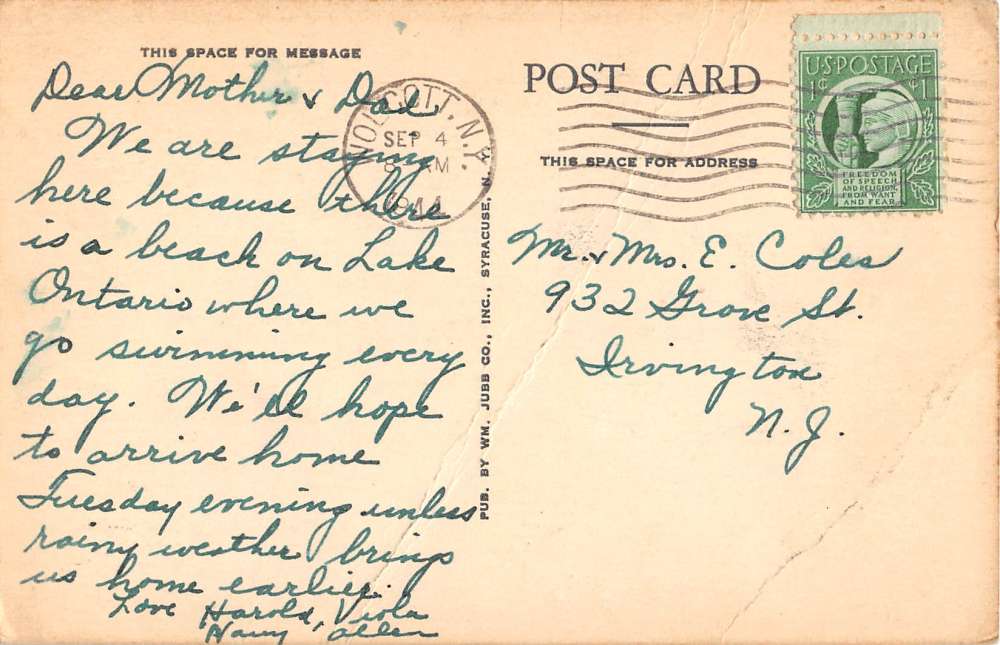 THIS SPACE FOR MESSAGE
Dear Mother & Dad
We are staying
here because there
is a beach on Lake
Ontario where we
go swimming every
day. We'll hope
to arrive home
Tuesday evening unless
rainy weather brings
us home earlier.
Love Harold, Viola
Allen
WOLCOTT, N.Y.
SEP 4
8 AM
1944
PUB. BY WM. JUBB CO., INC., SYRACUSE, N.Y.
POST CARD
THIS SPACE FOR ADDRESS
U.S. POSTAGE
1¢ ¢1
FREEDOM
OF SPEECH
AND RELIGION,
FROM WANT
AND FEAR
Mr. & Mrs. E. Coles
932 Grove St.
Irvington
N.J.